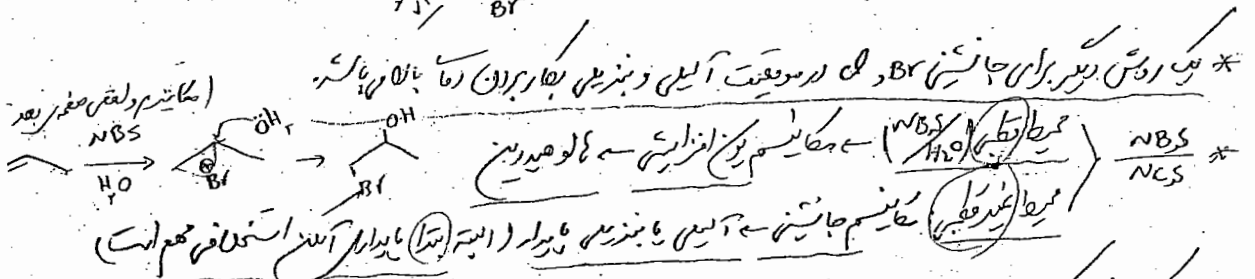 Br
* یک روش دیگر برای جانشینی Br و Cl در موقعیت آلیلی و بنزیلی بکار بردن دما بالا می‌باشد.
(مکانیسم واقعی صفحه‌ی بعد
* NBS / NCS
محیط قطبی (NBS / H₂O) → مکانیسم یون افزایشی → هالوهیدرین
NBS H₂O Br ⊕ ÖH₂ → OH Br
محیط غیرقطبی مکانیسم جانشینی → آلیلی یا بنزیلی پایدار (البته ابتدا پایداری آلکن استخلافی مهم است)